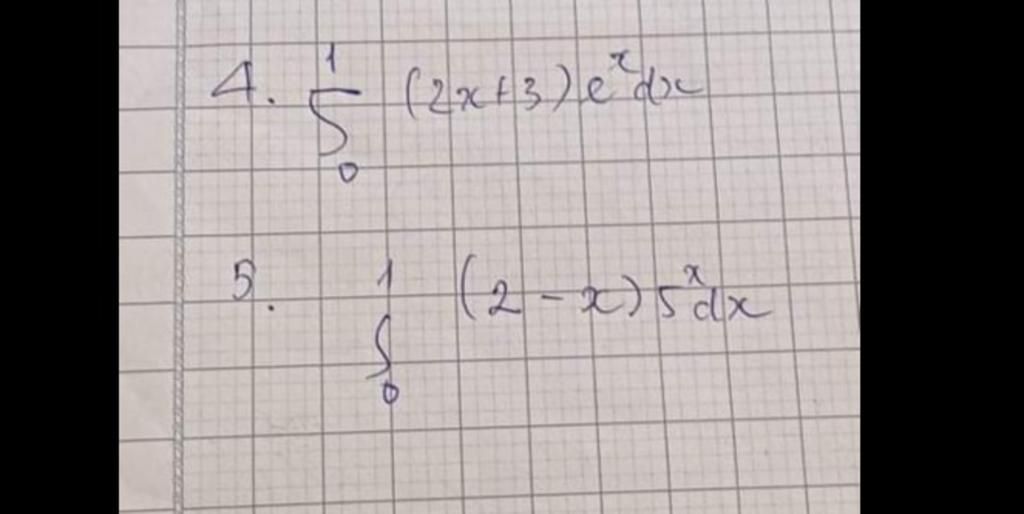 4. ∫₀¹ (2x+3)eˣdx
5. ∫₀¹ (2-x)5ˣdx